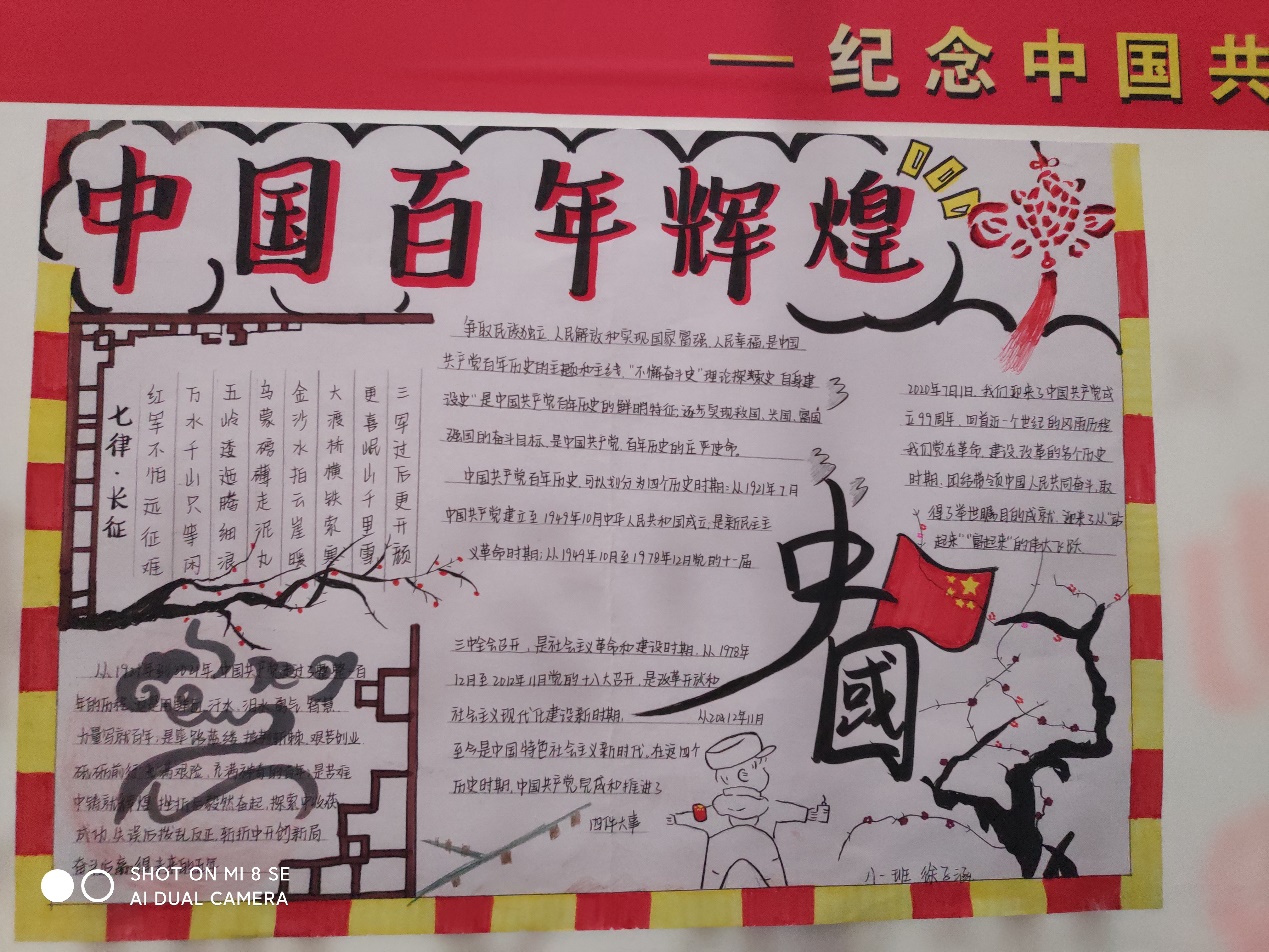 一纪念中国共
中国百年辉煌
七律·长征
红军不怕远征难
万水千山只等闲
五岭逶迤腾细浪
乌蒙磅礴走泥丸
金沙水拍云崖暖
大渡桥横铁索寒
更喜岷山千里雪
三军过后更开颜
争取民族独立、人民解放和实现国家富强、人民幸福,是中国
共产党百年历史的主题和主线,"不懈奋斗史"理论探索史 自身建
设史"是中国共产党百年历史的鲜明特征;逐步实现救国、兴国、富国
强国的奋斗目标,是中国共产党百年历史的庄严使命。
中国共产党百年历史,可以划分为四个历史时期:从1921年7月
中国共产党建立至1949年10月中华人民共和国成立,是新民主主
义革命时期;从1949年10月至1978年12月党的十一届
三中全会召开,是社会主义革命和建设时期,从1978年
12月至2012年11月党的十八大召开,是改革开放和
社会主义现代化建设新时期, 从2012年11月
至今是中国特色社会主义新时代,在这四个
历史时期,中国共产党完成和推进了
四件大事
2020年7月1日,我们迎来了中国共产党成
立99周年,回首近一个世纪的风雨历程
我们党在革命、建设、改革的各个历史
时期,团结带领中国人民共同奋斗,取
得了举世瞩目的成就,迎来了从"站
起来""富起来"的伟大飞跃
中國
从1921年到2021年,中国共产党走过了整整一百
年的历程,鲜血、汗水、泪水、勇气、智慧
力量写就百年;是筚路蓝缕、披荆斩棘、艰苦创业
砥砺前行,充满艰险、充满神奇的百年;是苦难
中铸就辉煌、挫折后毅然奋起、探索中收获
成功、失误后拨乱反正、转折中开创新局
八一班 徐
SHOT ON MI 8 SE
AI DUAL CAMERA